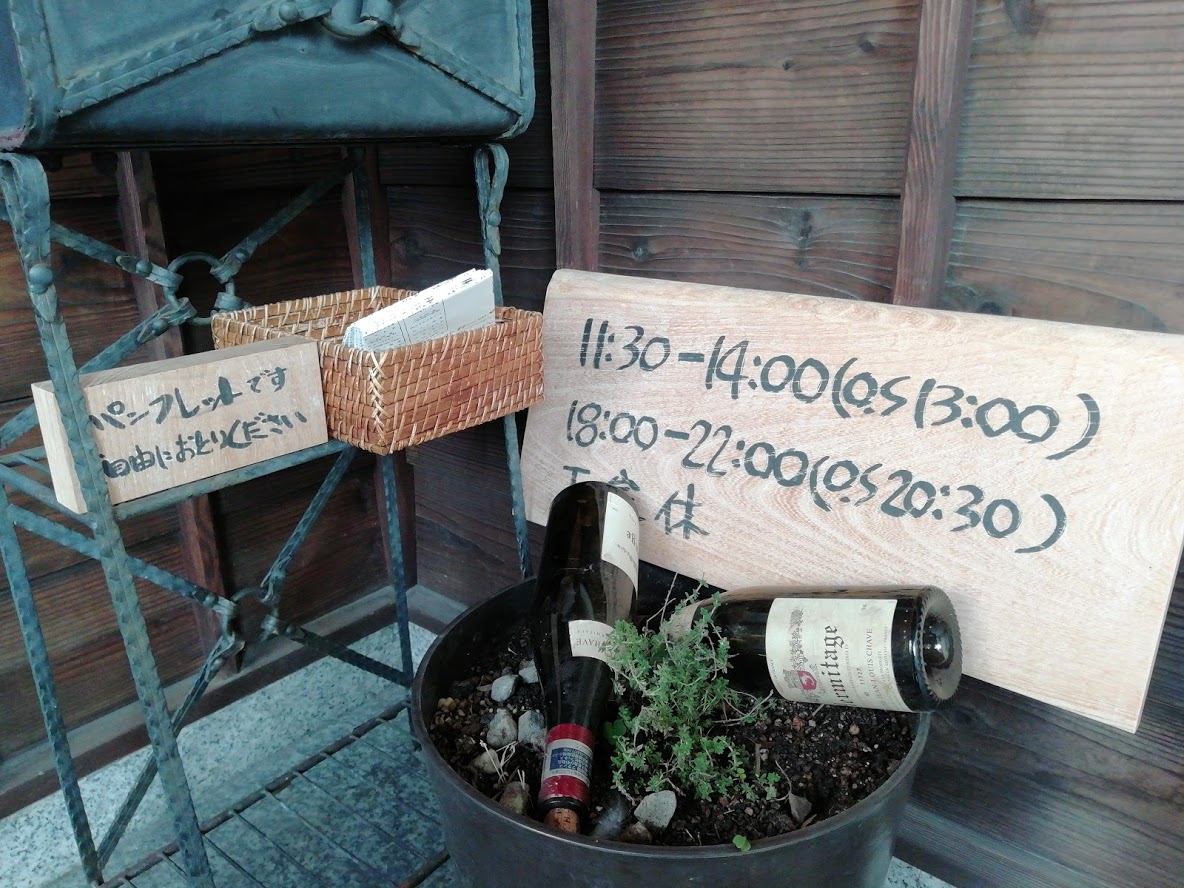 パンフレットです
自由におとりください
11:30-14:00(o.s 13:00)
18:00-22:00(o.s 20:30)
休
HAVE
ermitage
JEAN-LOUIS CHAVE